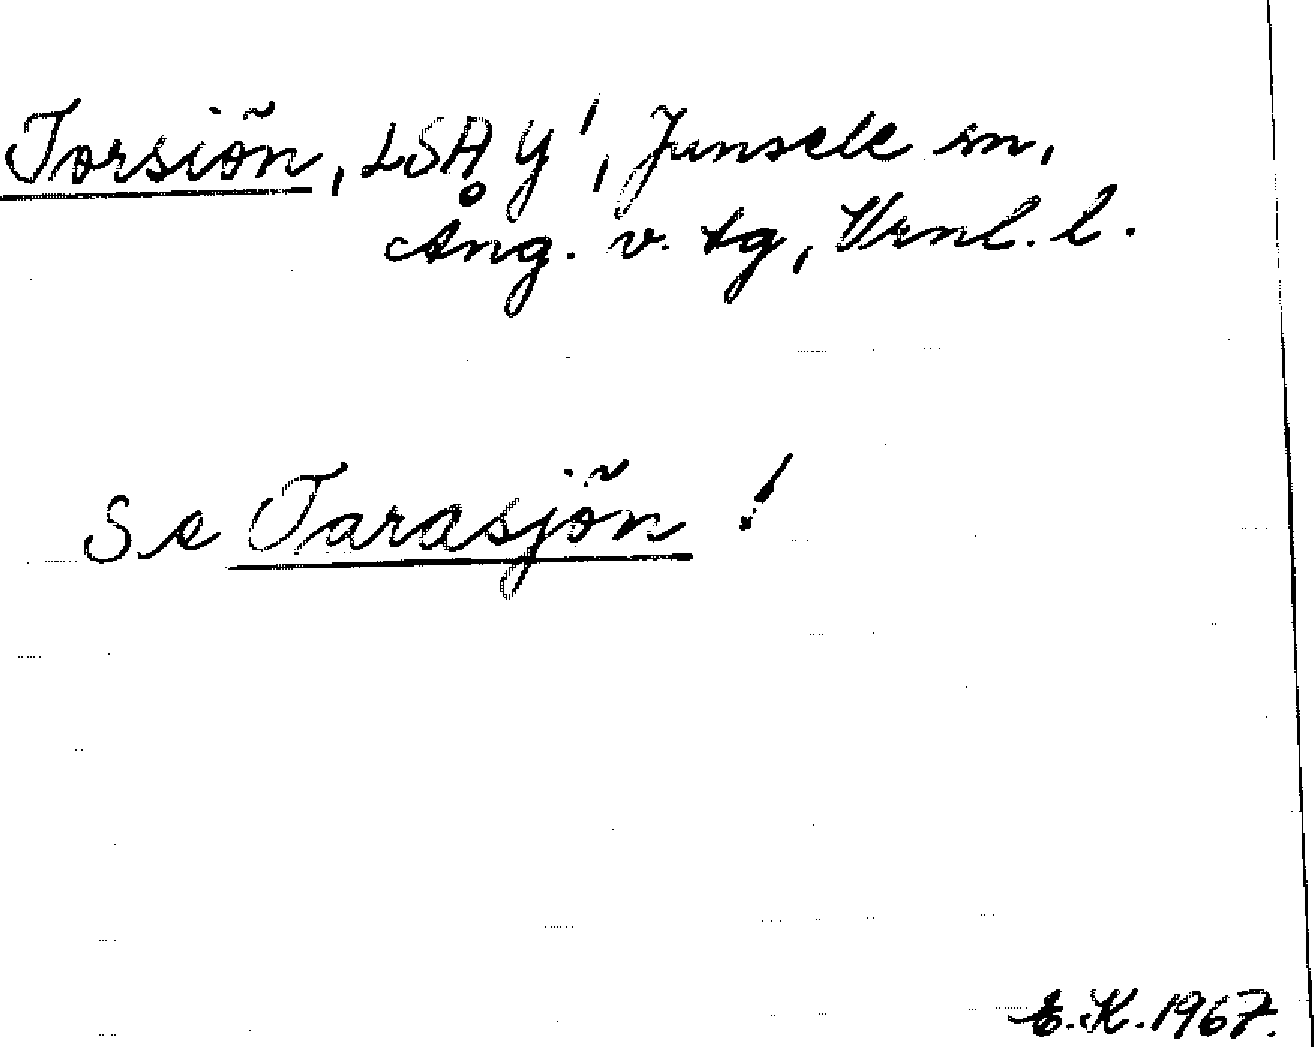 Torsiön, LSA Y¹, Junsele sn,
Ång. v. tg, Vrnl. l.
Se Tarasjön !
E.K. 1967.